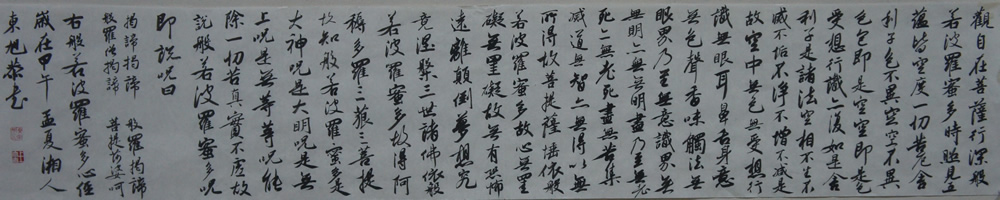 觀自在菩薩行深般
若波羅蜜多時照見五
蘊皆空度一切苦厄舍
利子色不異空空不異
色色即是空空即是色
受想行識亦復如是舍
利子是諸法空相不生不
滅不垢不淨不增不減是
故空中無色無受想行
識無眼耳鼻舌身意
無色聲香味觸法無
眼界乃至無意識界無
無明亦無無明盡乃至無老
死亦無老死盡無苦集
滅道無智亦無得以無
所得故菩提薩埵依般
若波羅蜜多故心無罣
礙無罣礙故無有恐怖
遠離顛倒夢想究
竟涅槃三世諸佛依般
若波羅蜜多故得阿
耨多羅三藐三菩提
故知般若波羅蜜多是
大神呪是大明呪是無
上呪是無等等呪能
除一切苦真實不虛故
說般若波羅蜜多呪
即說呪曰
揭諦揭諦 般羅揭諦
般羅僧揭諦 菩提薩婆呵
右般若波羅蜜多心經
歲在甲午孟夏湘人
東旭恭書